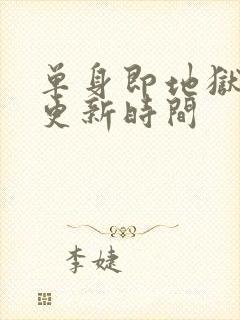 单身即地獄
更新時間
李婕